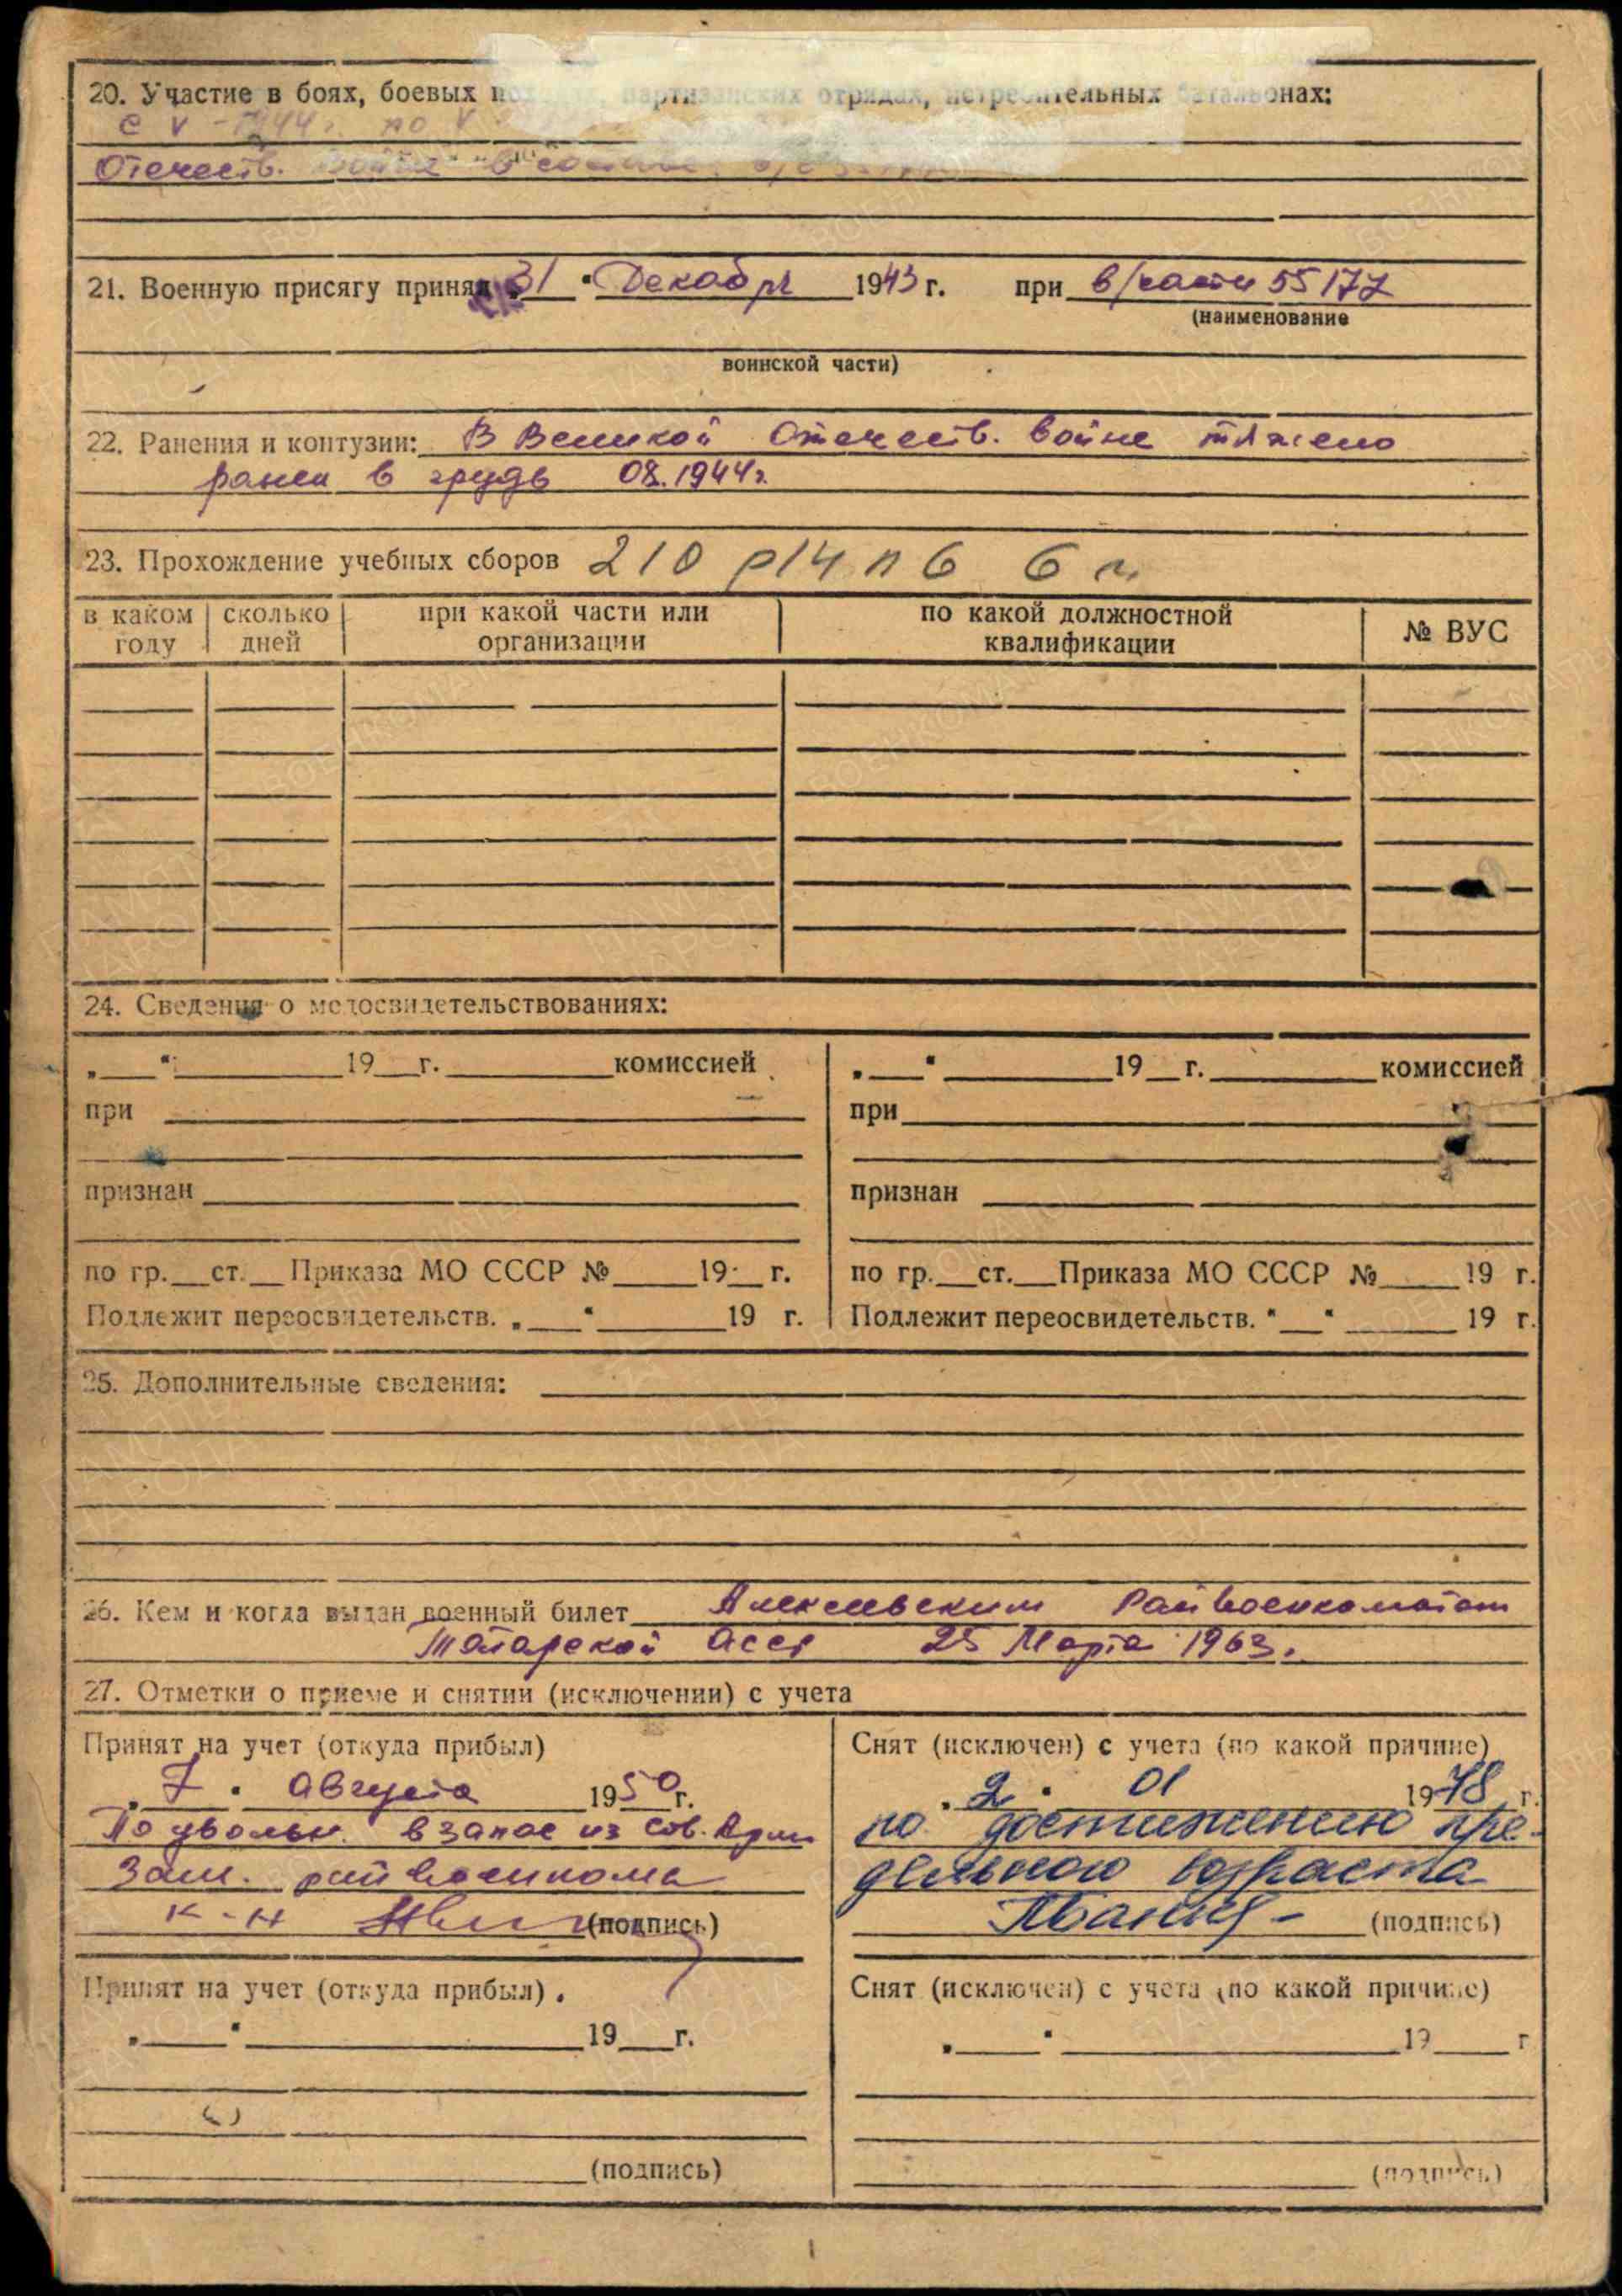 20. Участие в боях, боевых партизанских отрядах, истребительных батальонах:
с V - 1944 г. по V
Отечеств. войне в составе
21. Военную присягу принял „31“ Декабря 1943 г. при в/части 55177
(наименование
воинской части)
22. Ранения и контузии: В Великой Отечеств. войне тяжело
ранен в грудь 08.1944г.
23. Прохождение учебных сборов 210
в каком году
сколько дней
при какой части или организации
по какой должностной квалификации
№ ВУС
24. Сведения о медосвидетельствованиях:
„ “ 19 г. комиссией
при
признан
по гр. ст. Приказа МО СССР № 19 г.
Подлежит переосвидетельств. „ “ 19 г.
„ “ 19 г. комиссией
при
признан
по гр. ст. Приказа МО СССР № 19 г.
Подлежит переосвидетельств. “ “ 19 г.
25. Дополнительные сведения:
26. Кем и когда выдан военный билет Алексеевским Райвоенкоматом
Татарской АССР 25 Марта 1963г.
27. Отметки о приеме и снятии (исключении) с учета
Принят на учет (откуда прибыл)
„7“ Августа 1950 г.
По увольн. в запас из Сов. Арми
Зам. райвоенкома
к-н (подпись)
Снят (исключен) с учета (по какой причине)
„2“ 01 1978 г.
по достижению пре-
дельного возраста
(подпись)
Принят на учет (откуда прибыл)
„ “ 19 г.
(подпись)
Снят (исключен) с учета (по какой причине)
„ “ 19 г
(подпись)
ПАМЯТЬ НАРОДА
ВОЕНКОМАТЫ